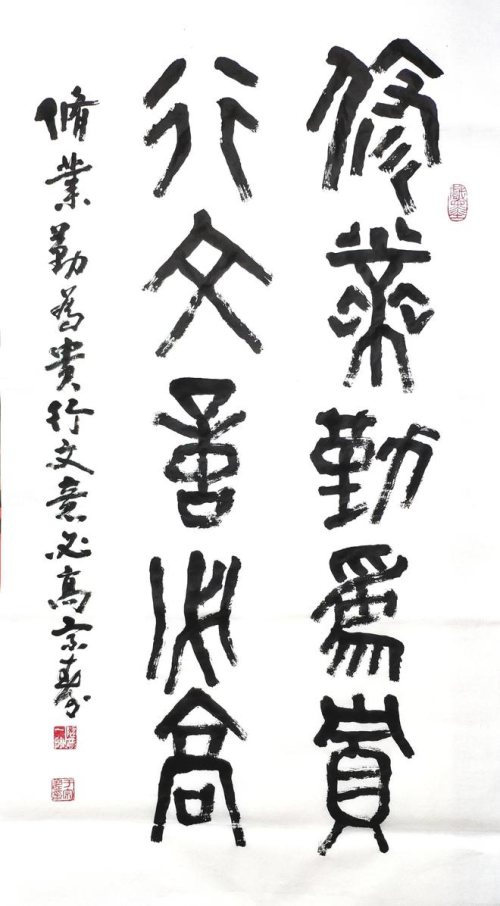 修業勤為貴
行文意必高
脩業勤為貴行文意必高京壽